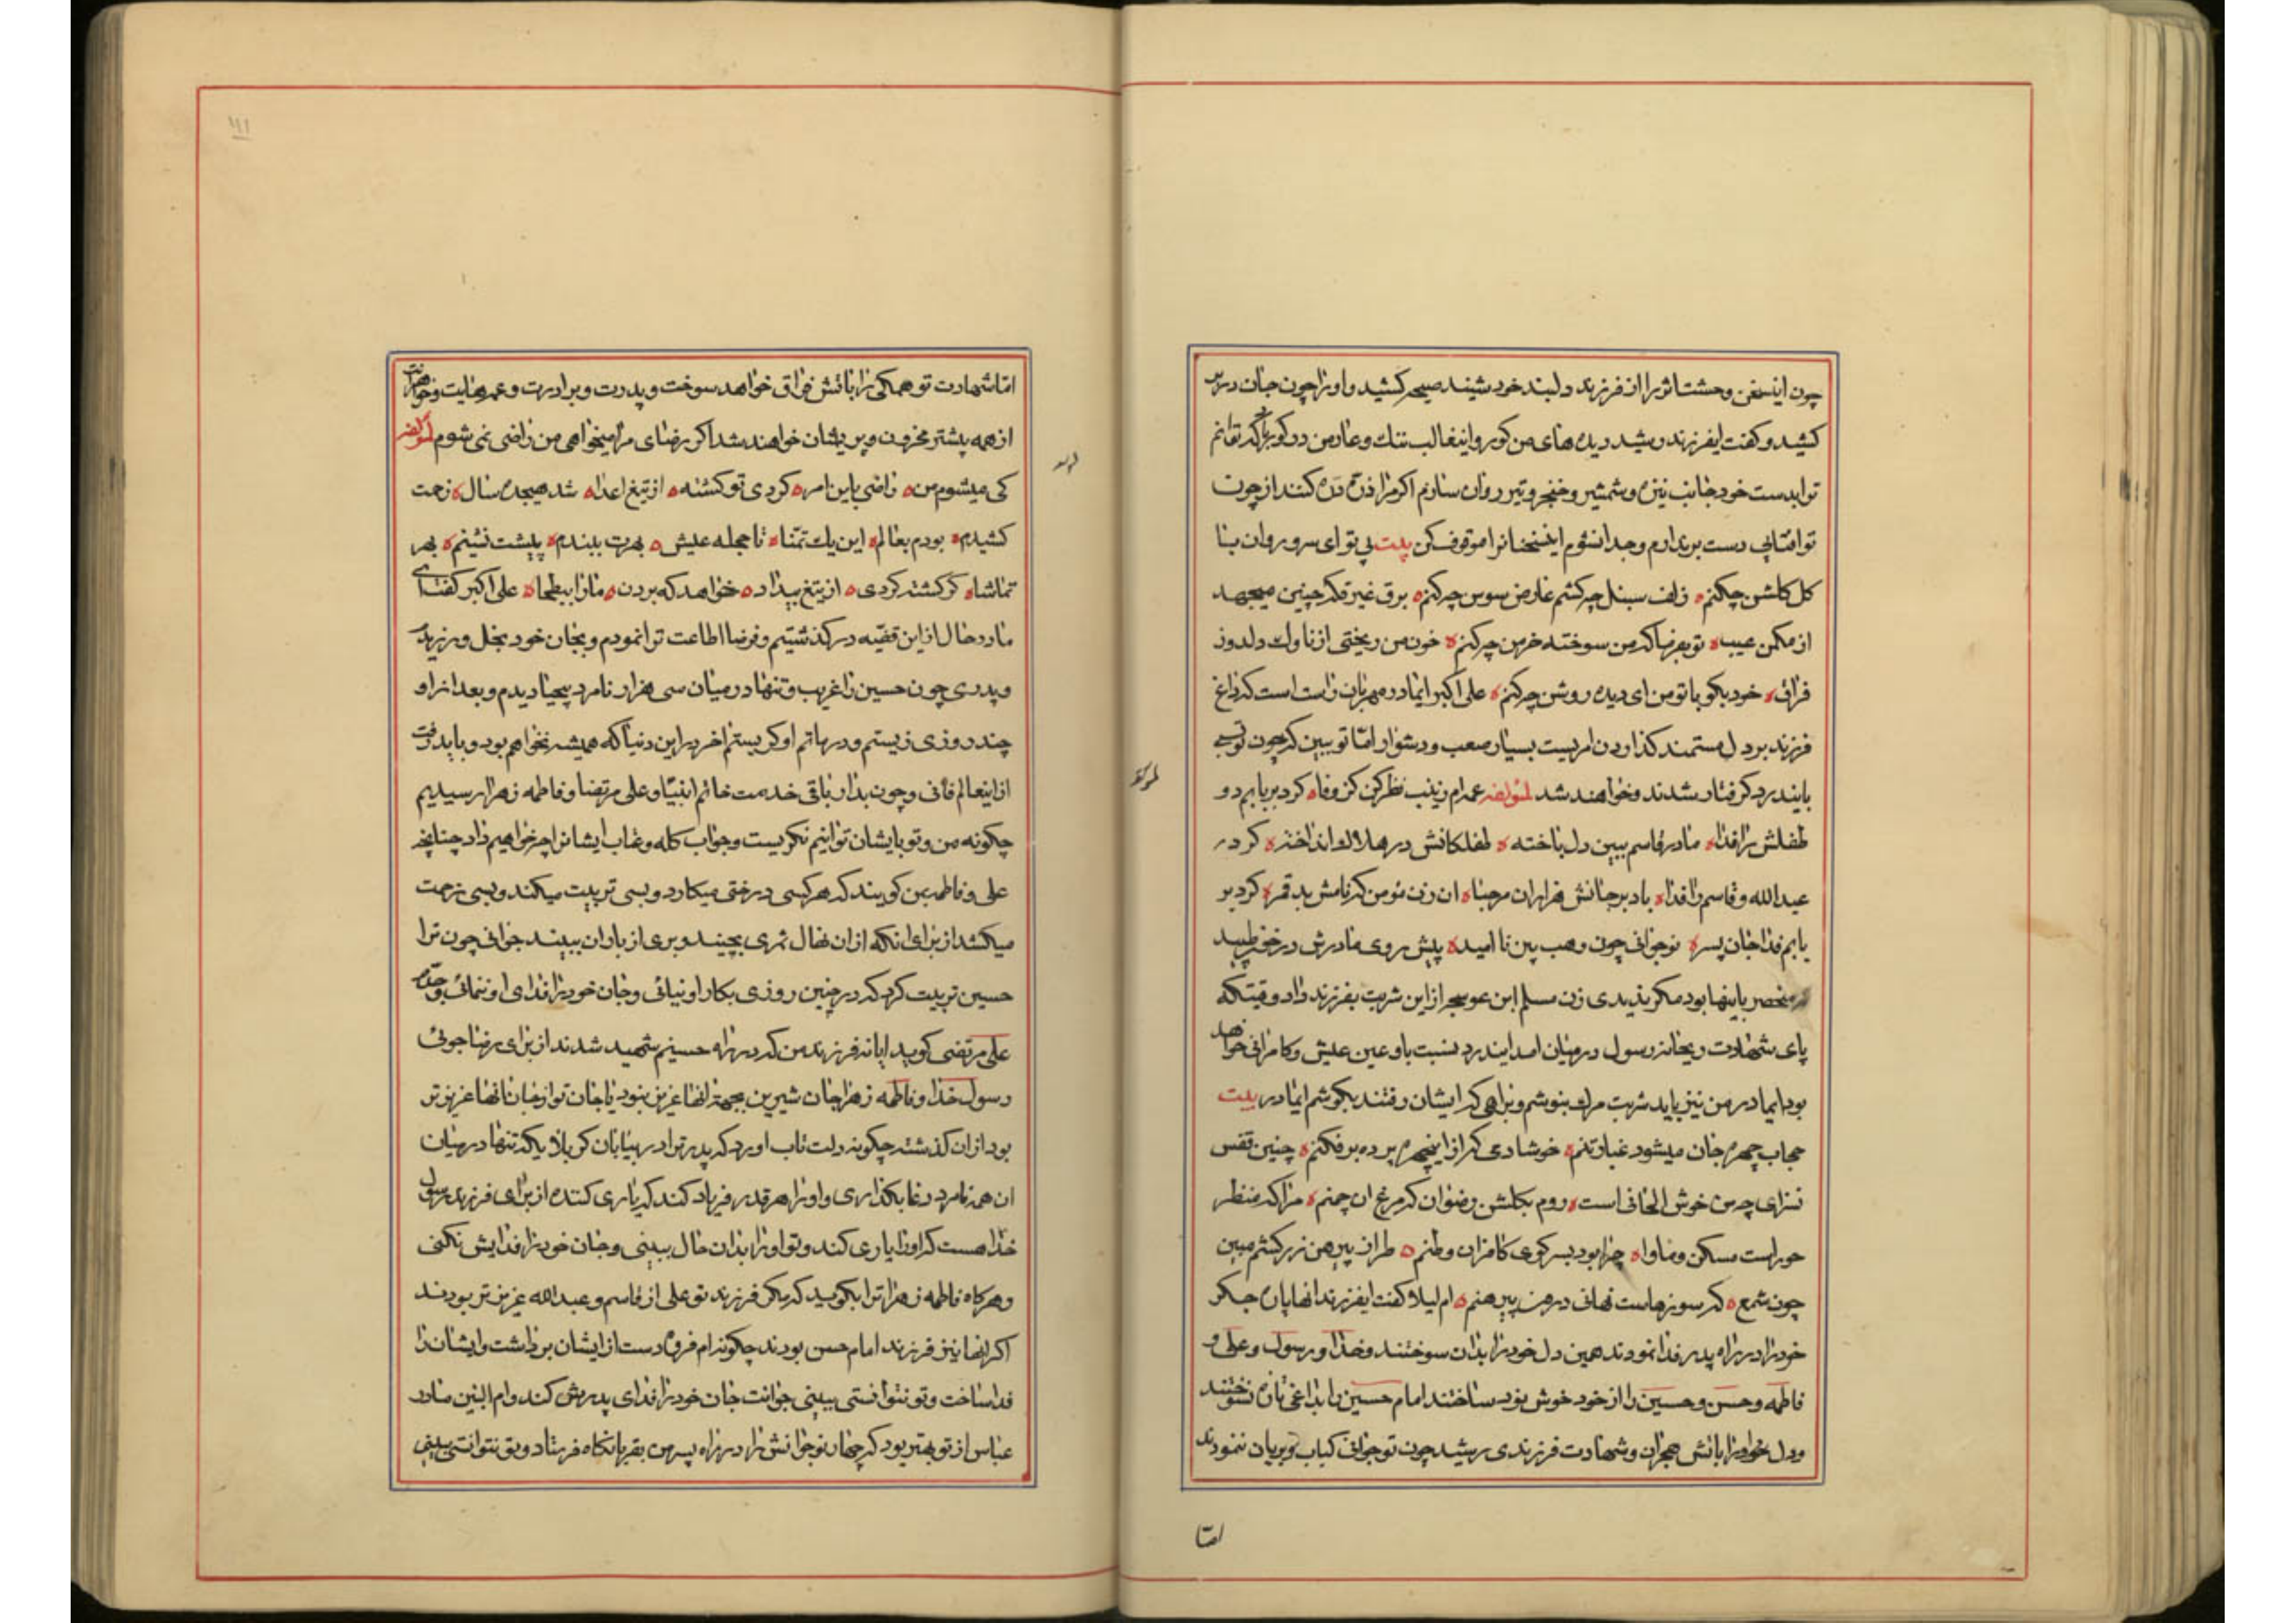 چون اینسخن وحشت اثر را از فرزند دلبند خود شنید صیحه کشید و او را چون جان در بر
کشید و کفت ایفرزند رشید دیده های من کور و اینقالب تنك و عار من در کور باد که توانم
ترا بدست خود جانب نیزه و شمشیر و خنجر و تیر روان سازم اکر مرا ذره ذره کنند از چون
تو افتابی دست برندارم و جدا نشوم اینسخنانرا موقوف کن بیت بی تو ای سرو روان با
کل کلشن چکنم ه زلف سنبل چه کشم عارض سوسن چه کنم ه برق غیرت که چنین میجهد
از مکمن غیب ه تو بفرما که من سوخته خرمن چه کنم ه خون من ریختی از ناوك دلدوز
فراق ه خود بکو با تو من ای دیده روشن چه کنم ه علی اکبر ایمادر مهربان راست است که داغ
فرزند بر دل مستمند کذاردن امریست بسیار صعب و دشوار امّا تو ببین که چون تو بسی
باین درد کرفتار شدند و خواهند شد لمؤلفه عمه ام زینب نظر کن کز وفا ه کرد بر بابم دو
طفلش را فدا ه مادر قاسم ببین دل باخته ه طفلکانش در هلاك انداخته ه کرد در
عبدالله و قاسم را فدا ه باد بر جانش هزاران مرحبا ه ان زن مؤمن که نامش بد قمر ه کرد بر
بابم فدا جان پسر ه نوجوانی چون وهب بین نا امید ه پیش روی مادرش در خون طپید
منحصر باینها بود مکر ندیدی زن مسلم ابن عوسجه از این شربت بفرزند داد وقتیکه
پای شهادت ریحانه رسول در میان امد ایندرد نسبت باو عین عیش و کامرانی خواهد
بود ایمادر من نیز باید شربت مرك بنوشم و براهی که ایشان رفتند بکوشم ایمادر بیت
حجاب چهره جان میشود غبار تنم ه خوشا دمی که از اینچهره پرده برفکنم ه چنین قفس
نه سزای چه من خوش الحانی است ه روم بکلشن رضوان که مرغ ان چمنم ه مرا که منظر
حوراست مسکن و ماوا ه چرا بود بسر کوی کامران وطنم ه طراز پیرهن زرکشم مبین
چون شمع ه که سوزهاست نهانی درون پیرهنم ه ام لیلا کفت ایفرزند انها پاره جکر
خود را در راه پدر فدا نمودند همین دل خود را بدان سوختند و خدا و رسول و علی و
فاطمه و حسن و حسین را از خود خوشنود ساختند امام حسین را بداغی تازه نسوختند
و دل خواهر را باتش هجران و شهادت فرزندی رشید چون تو جوانی کباب و بریان ننمودند
امّا
امّا شهادت تو همکی را باتش فراق خواهد سوخت و پدرت و برادرت و عمه هایت و خواهرانت
از همه بیشتر محزون و پریشان خواهند شد اکر رضای مرا میخواهی من راضی نمی شوم لمؤلفه
کی میشوم من ه راضی باین امر ه کردی تو کشته ه از تیغ اعدا ه شد هیجده سال ه زحمت
کشیدم ه بودم بعالم ه این یك تمنّا ه تا حجله عیش ه بهرت ببندم ه پیشت نشینم ه بهر
تماشا ه کر کشته کردی ه از تیغ بیداد ه خواهد که بردن ه ما را ببطحا ه علی اکبر کفت ای
مادر حال از این قضیّه در کذشتیم و فرضا اطاعت ترا نمودم و بجان خود بخل ورزیدم
و پدری چون حسین را غریب و تنها در میان سی هزار نامرد بیحیا دیدم و بعد از او
چند روزی زیستم و در ماتم او کریستم اخر در این دنیا که همیشه نخواهم بود و باید رفت
از اینعالم فانی و چون بدار باقی خدمت خاتم انبیّا و علی مرتضا و فاطمه زهرا رسیدیم
چکونه من و تو بایشان توانیم نکریست و جواب کله و عتاب ایشانرا چه خواهیم داد چنانچه
علی و فاطمه بمن کویند که هر کسی درختی میکارد و بسی تربیت میکند و بسی زحمت
میکشد از برای انکه از ان نهال ثمری بچیند و بری از باران ببیند جوانی چون ترا
حسین تربیت کرد که در چنین روزی بکار او نیائی و جان خود را فدای او ننمائی و جدّم
علی مرتضی کوید ایا نه فرزند من که در راه حسینم شهید شدند از برای رضا جوئی
رسول خدا و فاطمه زهرا جان شیرین بجهة انها عزیز نبود یا جان تو از جان انها عزیز تر
بود از ان کذشته چکونه دلت تاب اورد که پدر ترا در بیابان کربلا یکه تنها در میان
ان همه نامرد دغا بکذاری و او را هر قدر فریاد کند که یاری کننده از برای فرزند رسول
خدا هست که او را یاری کند و تو او را بدان حال ببینی و جان خود را فدایش نکنی
و هر کاه فاطمه زهرا ترا بکوید که مکر فرزند تو علی از قاسم و عبدالله عزیز تر بودند
اکر انها نیز فرزند امام حسن بودند چکونه ام فروه دست از ایشان برداشت و ایشان را
فدا ساخت و تو نتوانستی ببینی جوانت جان خود را فدای پدرش کند و ام البنین مادر
عباس از تو بهتر بود که چهار نوجوانش را در راه پسر من بقربانکاه فرستاد و تو نتوانستی ببینی